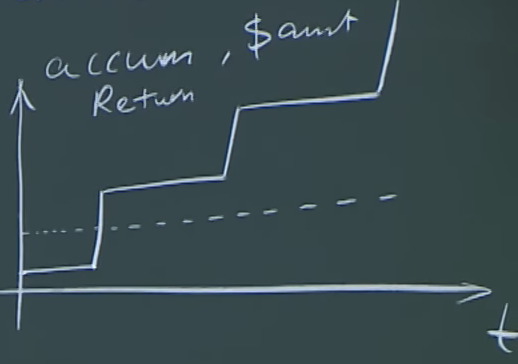 accum, $amt
Return
t